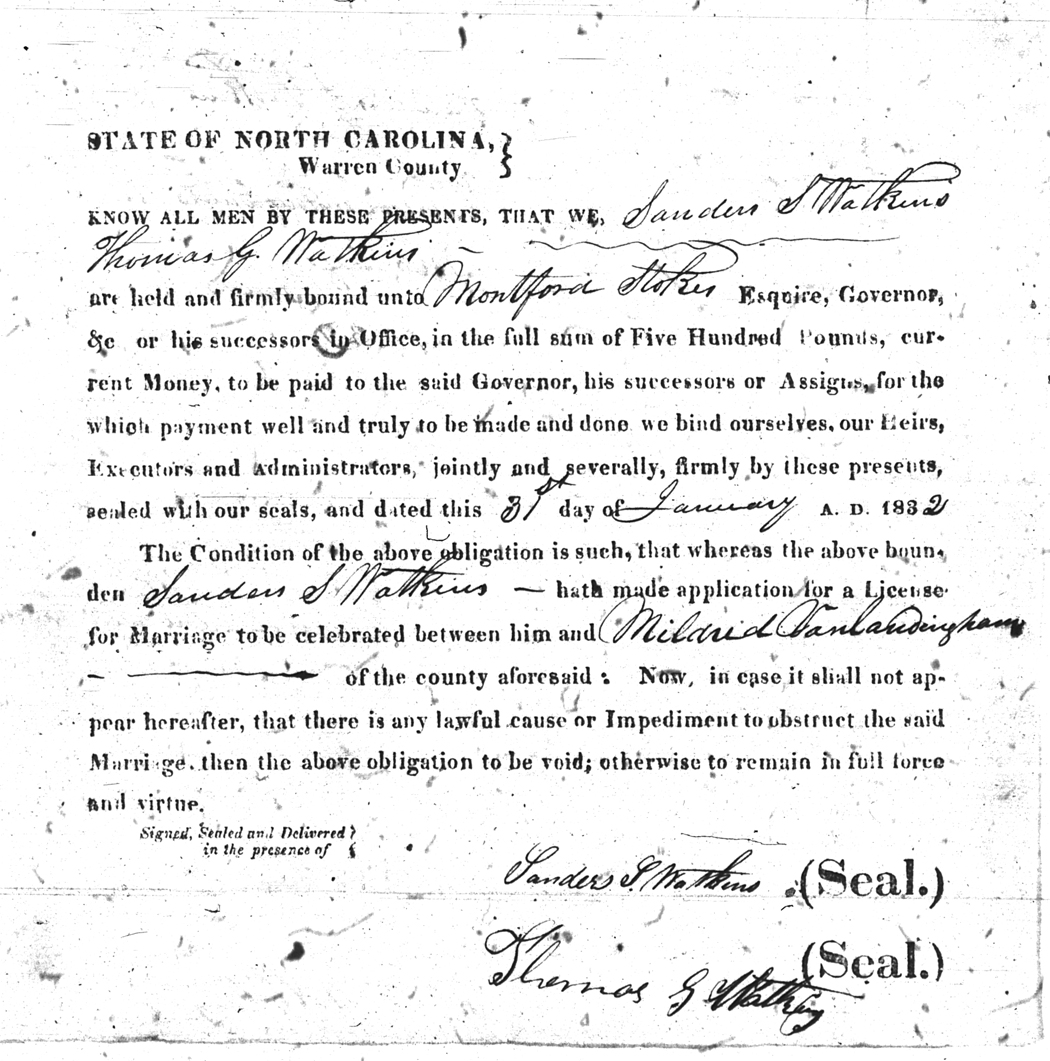 STATE OF NORTH CAROLINA,
Warren County
KNOW ALL MEN BY THESE PRESENTS, THAT WE, Sanders S Watkins
Thomas G. Watkins
are held and firmly bound unto Montford Stokes Esquire, Governor,
&c or his successors in Office, in the full sum of Five Hundred Pounds, cur-
rent Money, to be paid to the said Governor, his successors or Assigns, for the
which payment well and truly to be made and done we bind ourselves, our Heirs,
Executors and Administrators, jointly and severally, firmly by these presents,
sealed with our seals, and dated this 31st day of January A. D. 1832
The Condition of the above obligation is such, that whereas the above boun-
den Sanders S Watkins — hath made application for a License
for Marriage to be celebrated between him and Mildrid Vanlandingham
— of the county aforesaid : Now, in case it shall not ap-
pear hereafter, that there is any lawful cause or Impediment to obstruct the said
Marriage, then the above obligation to be void; otherwise to remain in full force
and virtue.
Signed, Sealed and Delivered
in the presence of
Sanders S. Watkins (Seal.)
Thomas G Watkins (Seal.)